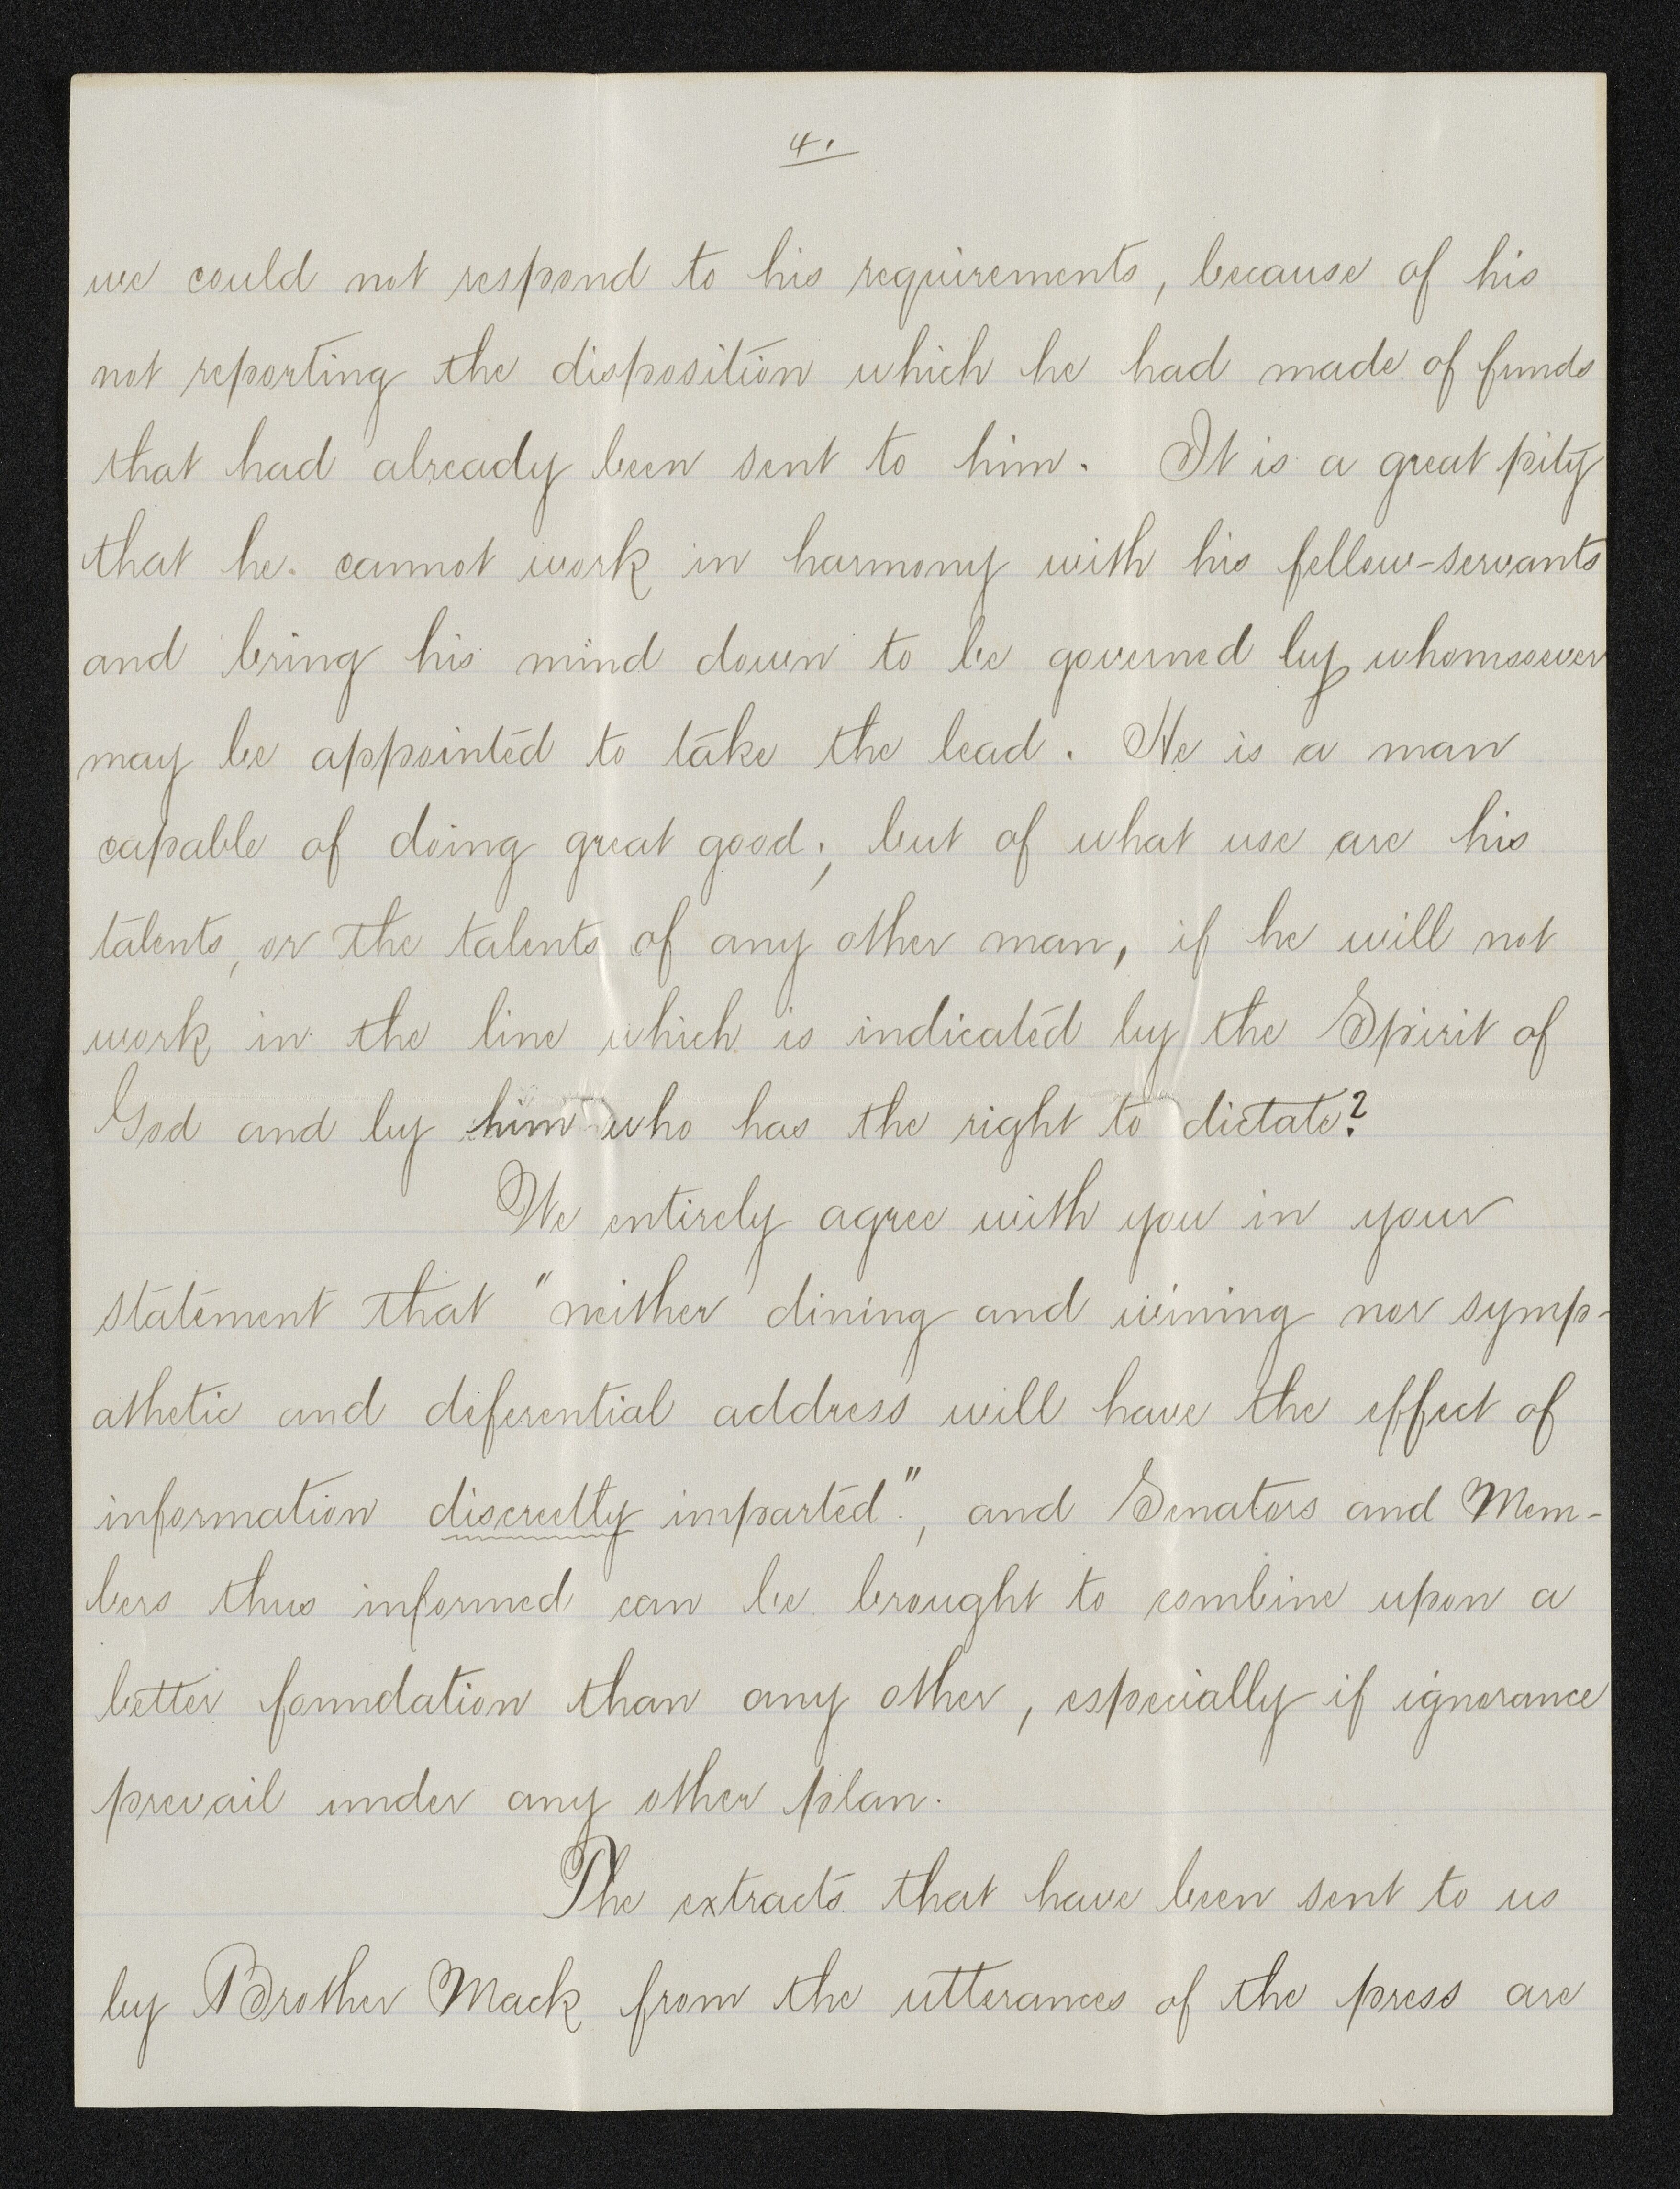 4.
we could not respond to his requirements, because of his
not reporting the disposition which he had made of funds
that had already been sent to him. It is a great pity
that he cannot work in harmony with his fellow-servants
and bring his mind down to be governed by whomsoever
may be appointed to take the lead. He is a man
capable of doing great good; but of what use are his
talents, or the talents of any other man, if he will not
work in the line which is indicated by the Spirit of
God and by him who has the right to dictate?
We entirely agree with you in your
statement that "neither dining and wining nor symp-
athetic and deferential address will have the effect of
information discreetly imparted", and Senators and Mem-
bers thus informed can be brought to combine upon a
better foundation than any other, especially if ignorance
prevail under any other plan.
The extracts that have been sent to us
by Brother Mack from the utterances of the press are